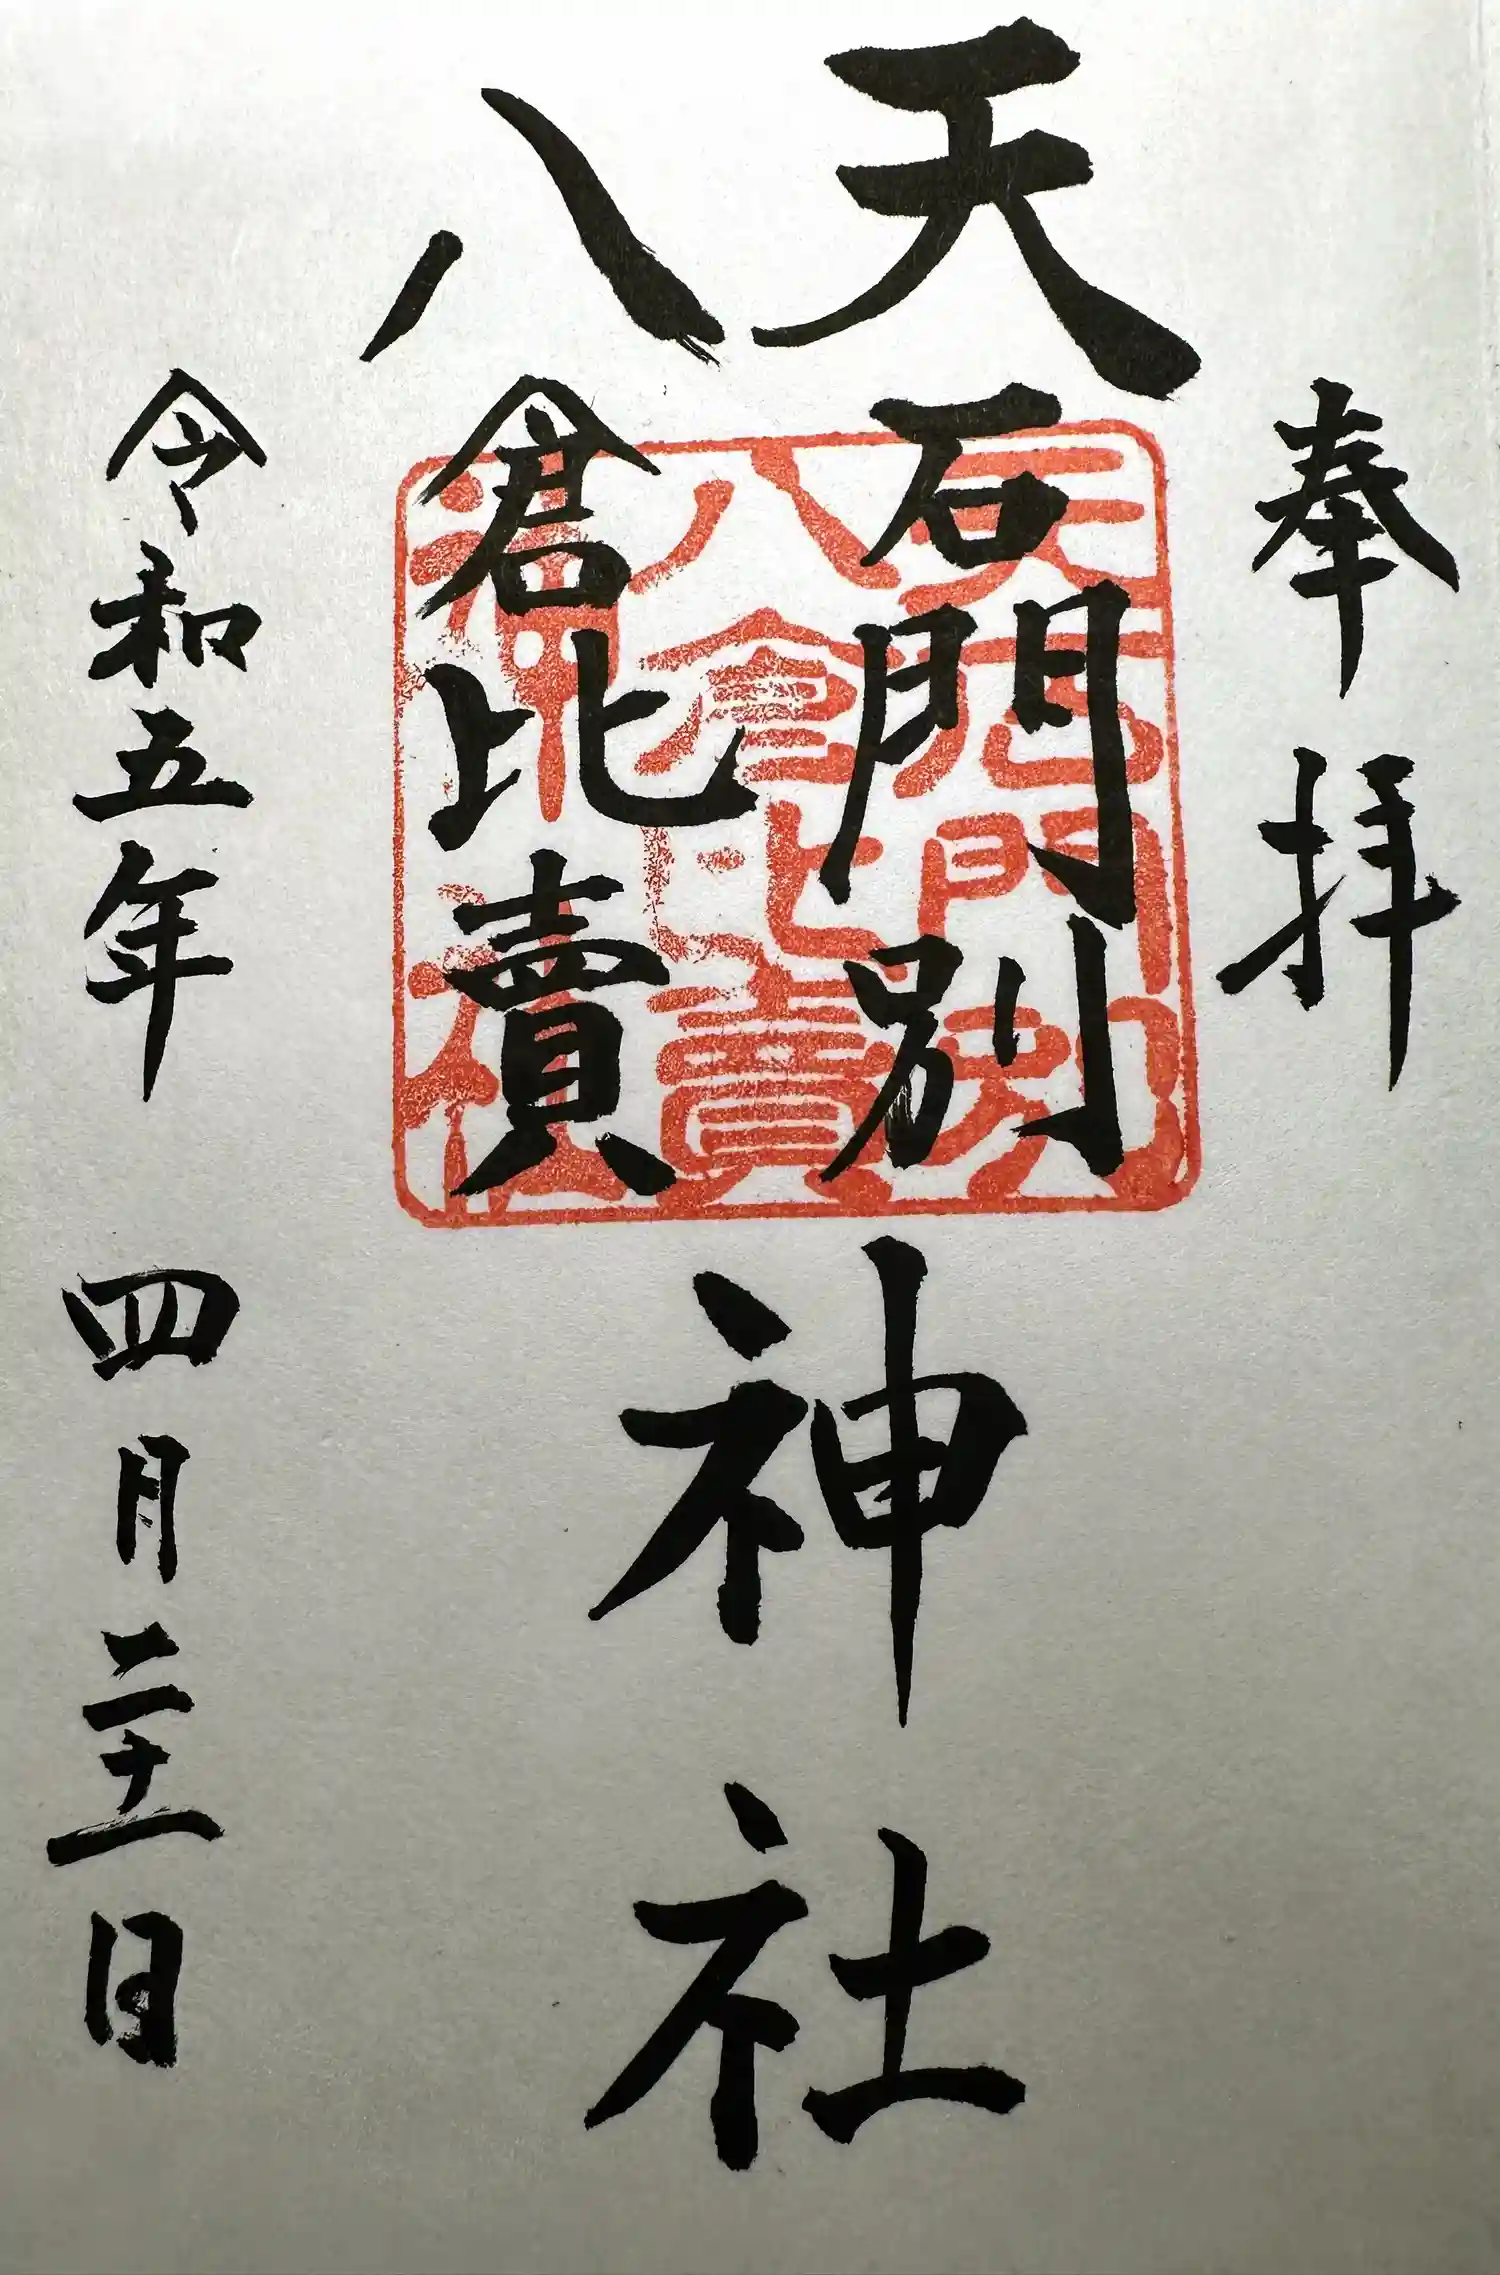 奉拝
天石門別
八倉比賣
神社
令和五年 四月二十一日
天石門別
八倉比賣
神社